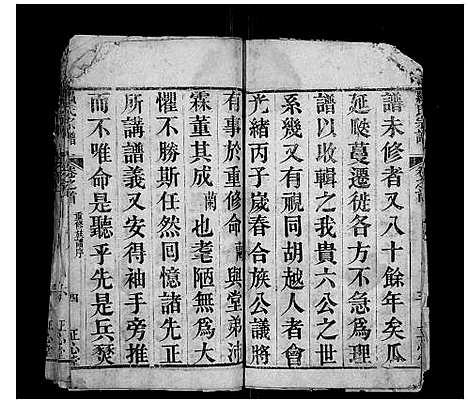 譜未修者又八十餘年矣瓜
延瞇蔓遷徙各方不急為理
譜以收輯之我貴六公之世
系幾又有視同胡越人者會
光緒丙子歲春合族公議將
有事於重修命蘭與堂弟沛
霖董其成蘭也耄陋無為大
懼不勝斯任然回憶諸先正
所講譜義又安得袖手旁推
而不唯命是聽乎先是兵燹
宗譜
卷之首
重修族譜序
四
正心堂